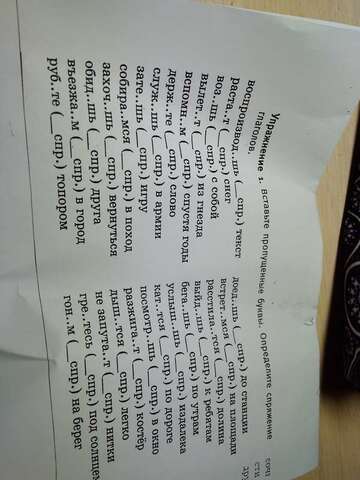 Упражнение 1. Вставьте пропущенные буквы. Определите спряжение
глаголов.
воспроизвод..шь (__спр.) текст
раста..т (__спр.) снег
воз..шь (__спр.) с собой
вылет..т (__спр.) из гнезда
вспомн..м (__спр.) спустя годы
держ..те (__спр.) слово
служ..шь (__спр.) в армии
зате..шь (__спр.) игру
собира..мся (__спр.) в поход
захоч..шь (__спр.) вернуться
обид..шь (__спр.) друга
въезжа..м (__спр.) в город
руб..те (__спр.) топором
доед..шь (__спр.) до станции
встрет..мся (__спр.) на площади
расстила..тся (__спр.) долина
выйд..шь (__спр.) к ребятам
бега..шь (__спр.) по утрам
услыш..шь (__спр.) издалека
кат..тся (__спр.) по дороге
посмотр..шь (__спр.) в окно
разжига..т (__спр.) костёр
дыш..тся (__спр.) легко
не запута..т (__спр.) нитки
гре..тесь (__спр.) под солнцем
гон..м (__спр.) на берег